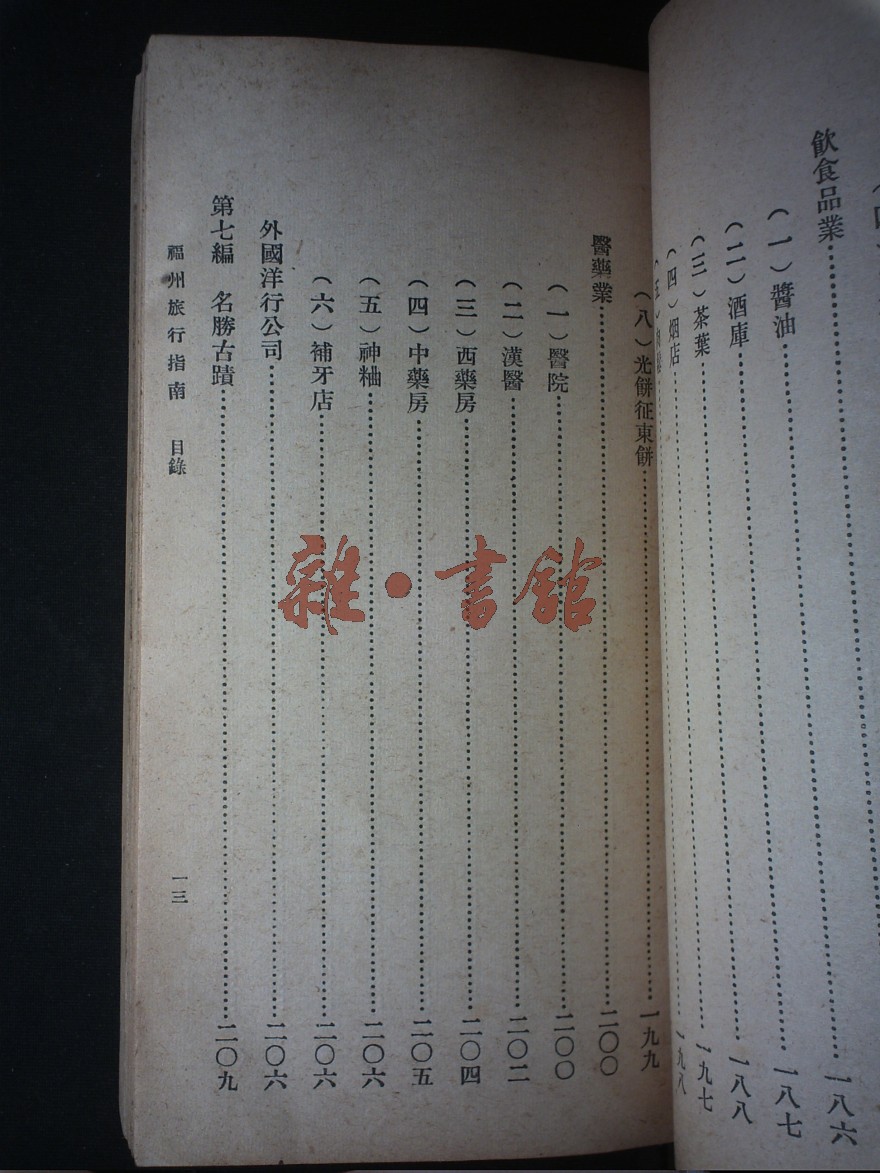 飲食品業……一八六
（一）醬油……一八七
（二）酒庫……一八八
（三）茶葉……一九七
（四）烟店……一九八
（八）光餅征東餅……一九九
醫藥業……二〇〇
（一）醫院……二〇〇
（二）漢醫……二〇二
（三）西藥房……二〇四
（四）中藥房……二〇五
（五）神粬……二〇六
（六）補牙店……二〇六
外國洋行公司……二〇六
第七編　名勝古蹟……二〇九
福州旅行指南　目錄　一三
雜·書館